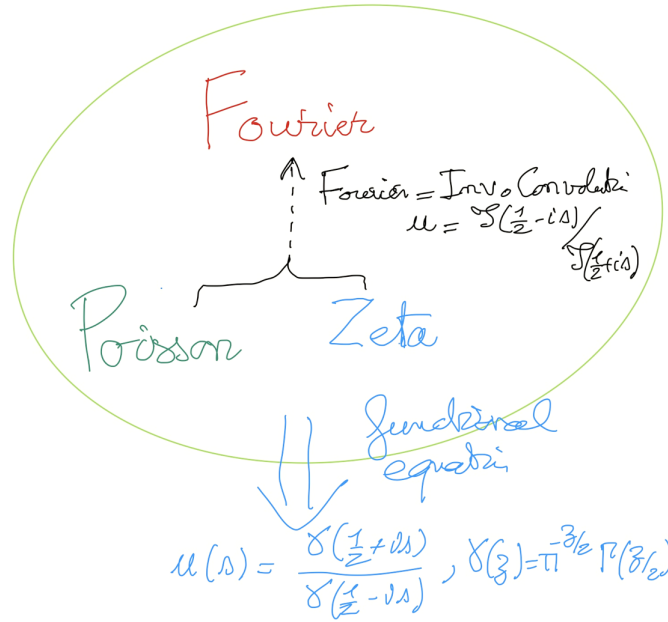 Fourier
Fourier = Inv∘Convoluti
u = ζ(1/2 - is) / ζ(1/2 + is)
Poisson Zeta
functional
equati
u(s) = γ(1/2 + is) / γ(1/2 - is) , γ(z) = π^{-z/2} Γ(z/2)